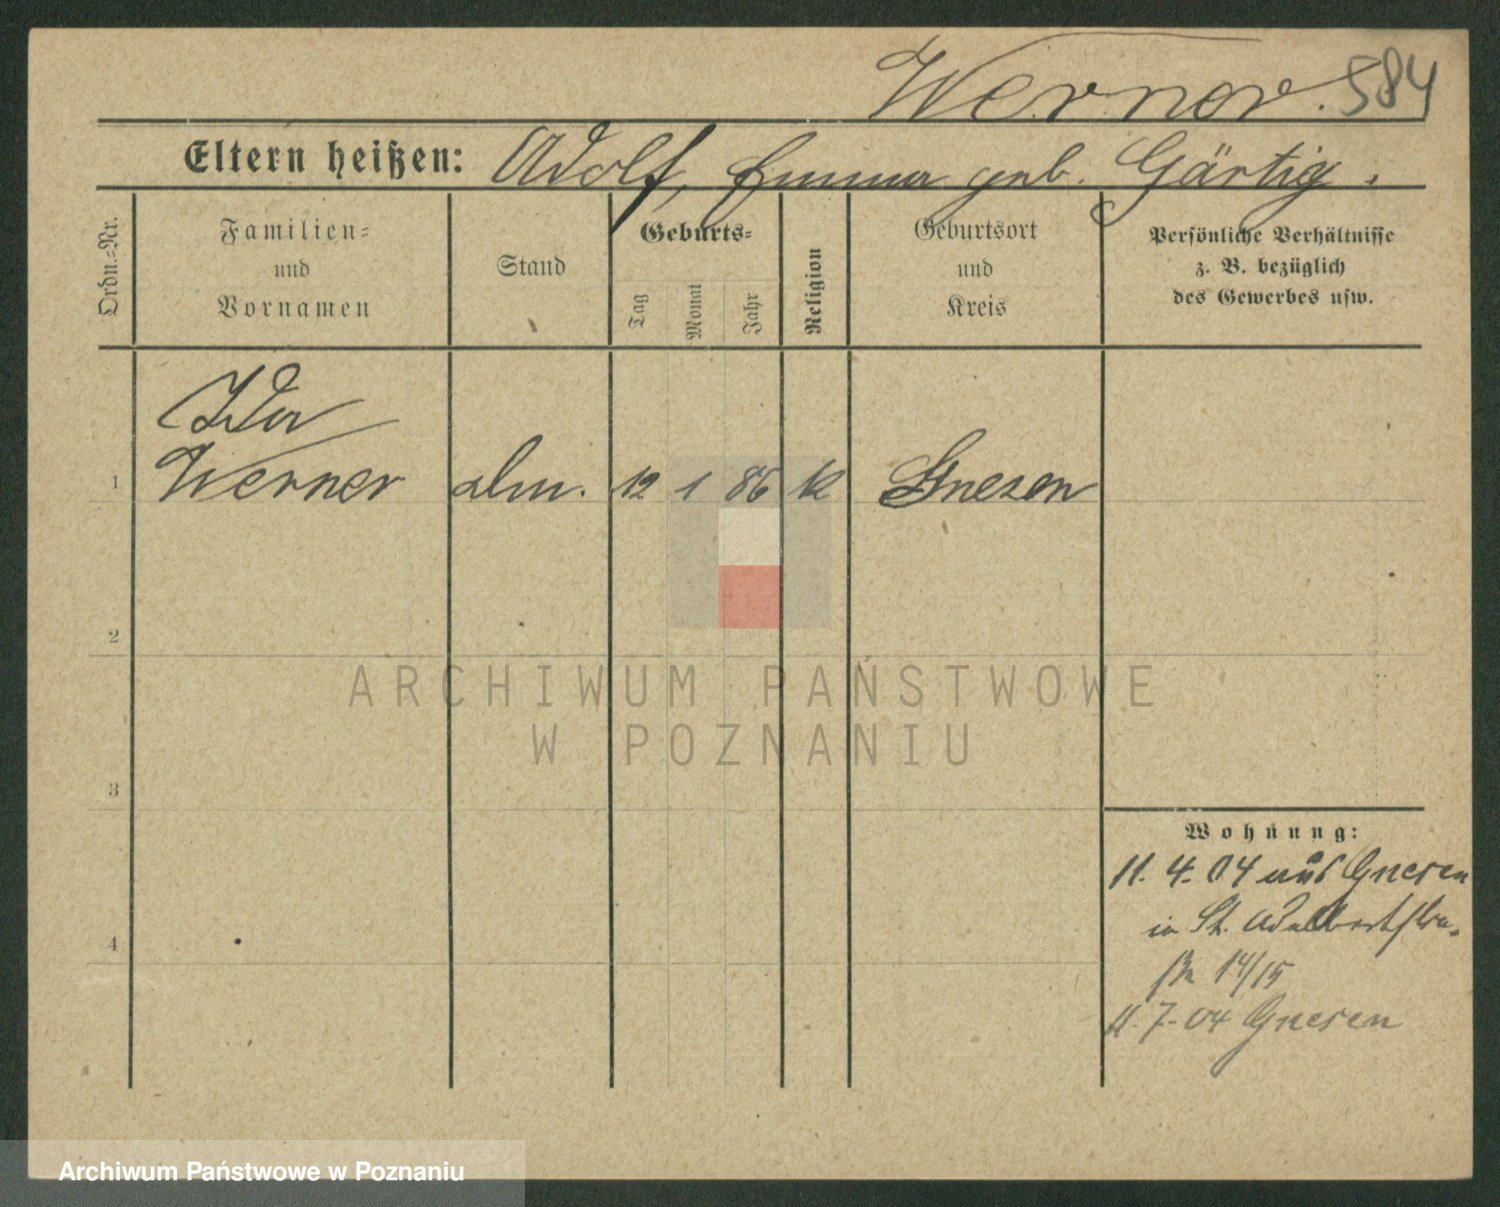 Werner. 584
Eltern heißen: Adolf, Emma geb. Gärtig.
Ordn.-Nr.
Familien-
und
Vornamen
Stand
Geburts-
Tag
Monat
Jahr
Religion
Geburtsort
und
Kreis
Persönliche Verhältnisse
z. B. bezüglich
des Gewerbes usw.
Ida
1 Werner 12 1 86 k Gnesen
2
3
4
Wohnung:
11. 4. 04 aus Gnesen
in St. Adalbertstra-
ße 14/15
11. 7. 04 Gnesen
ARCHIWUM PAŃSTWOWE
W POZNANIU
Archiwum Państwowe w Poznaniu